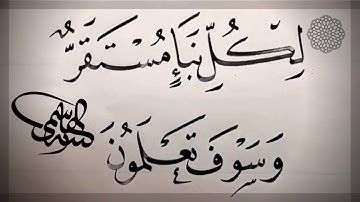 لِكُلِّ نَبَإٍ مُسْتَقَرٌّ
وَسَوْفَ تَعْلَمُونَ